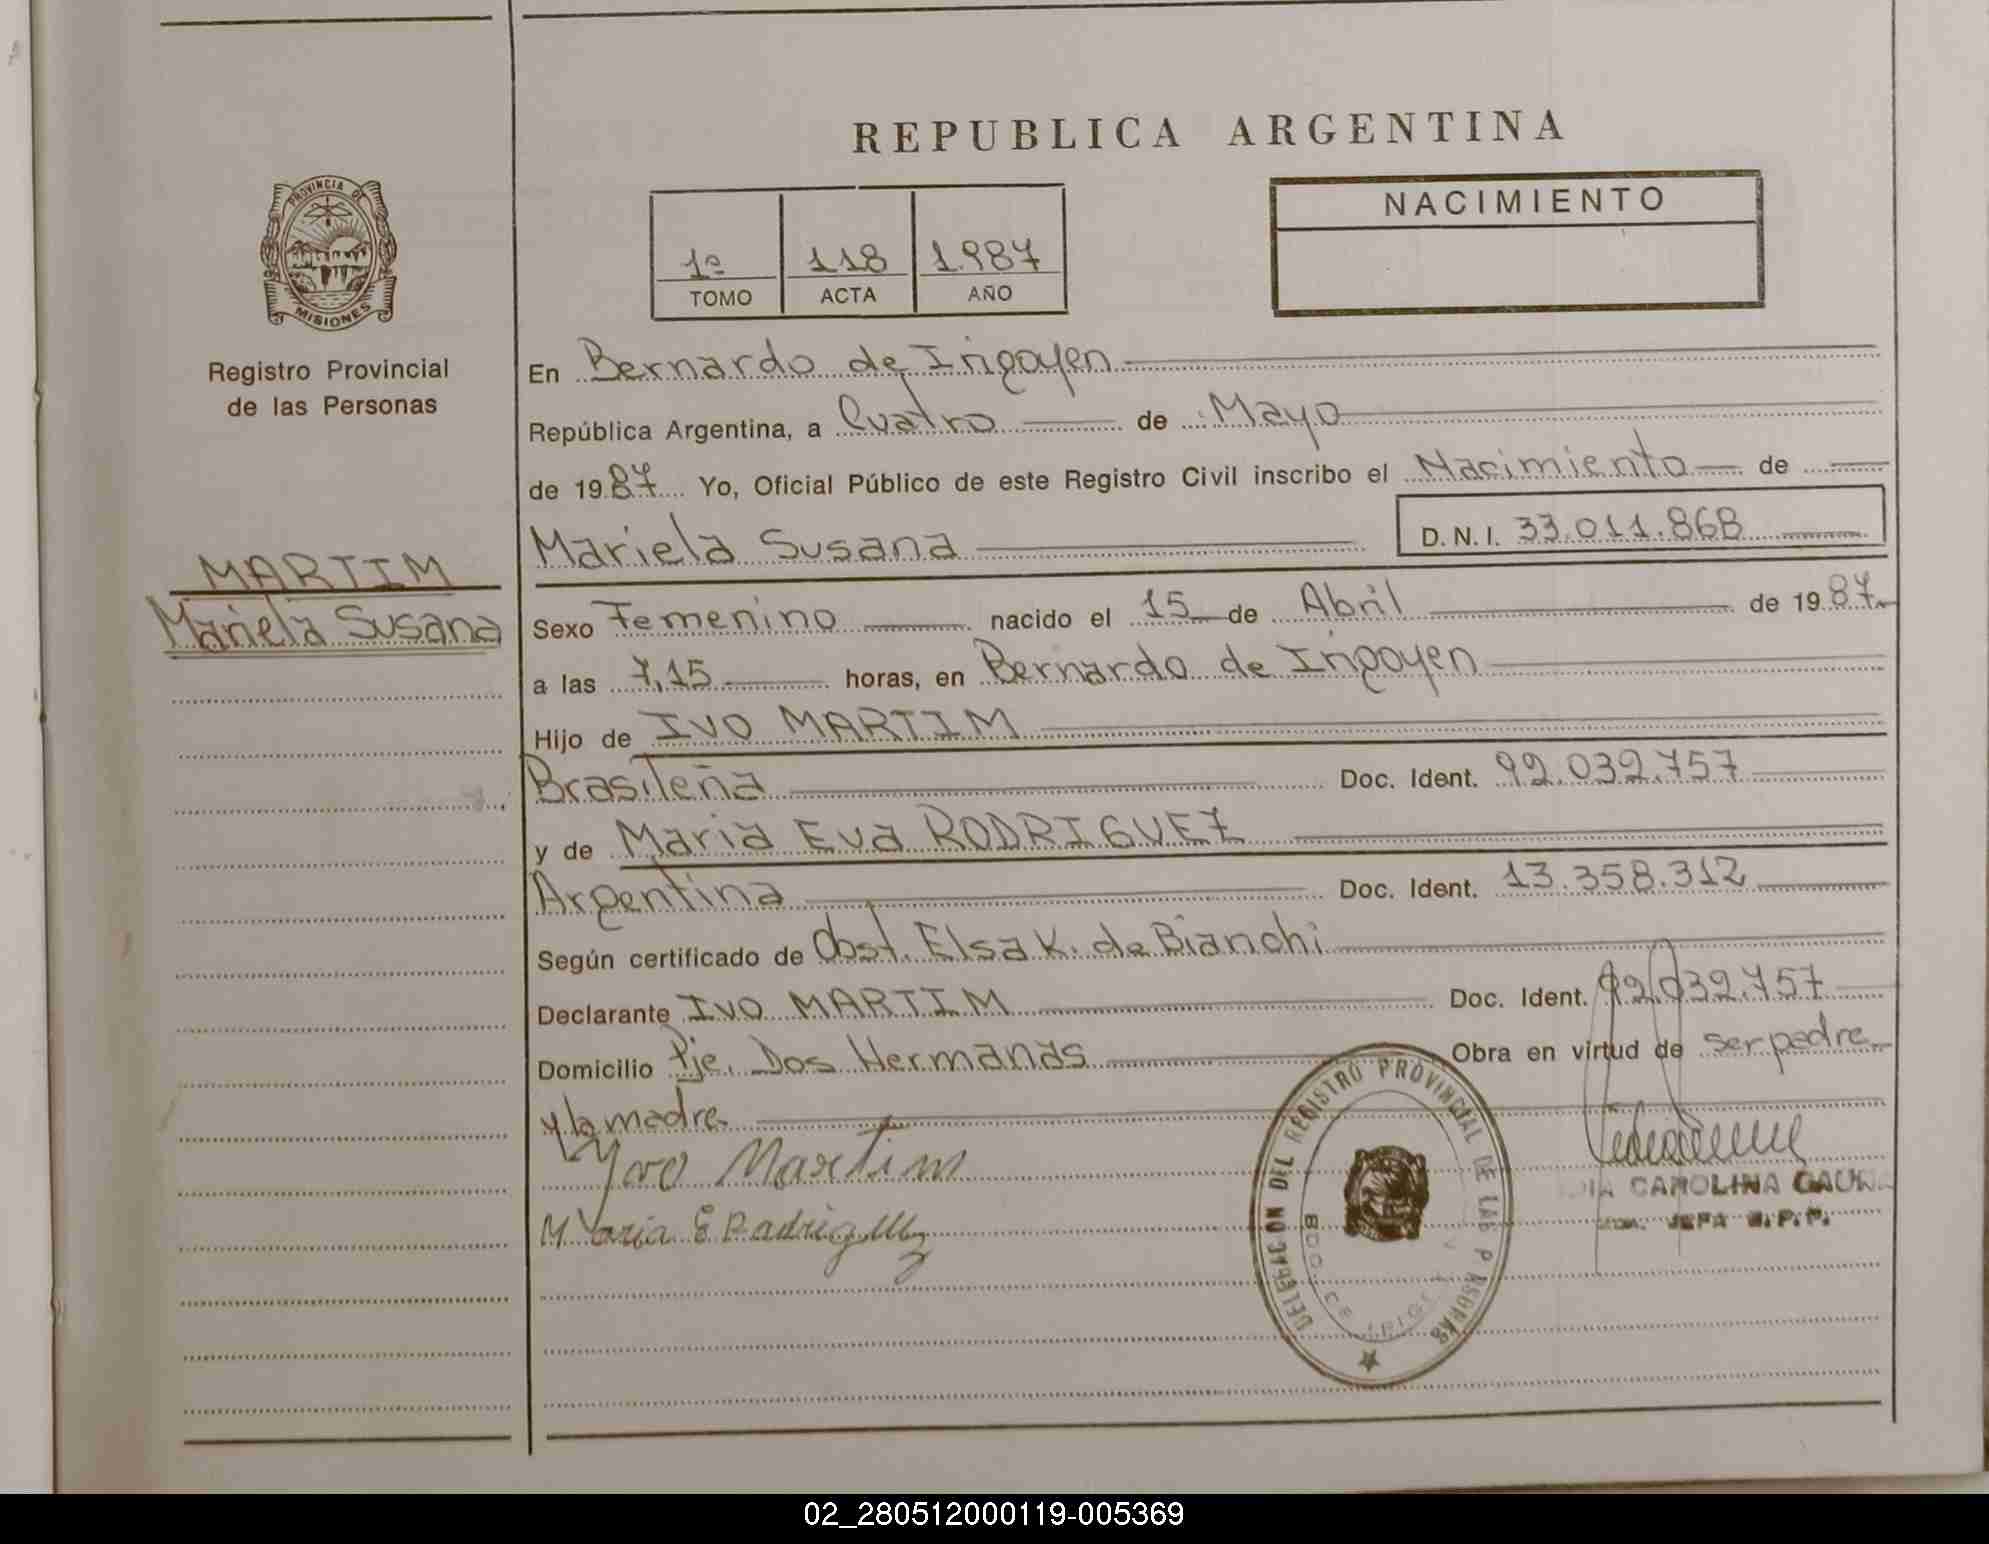 REPUBLICA ARGENTINA
PROVINCIA DE
MISIONES
Registro Provincial
de las Personas
1º 118 1.987
TOMO ACTA AÑO
NACIMIENTO
En Bernardo de Irigoyen
República Argentina, a Cuatro de Mayo
de 1987 Yo, Oficial Público de este Registro Civil inscribo el Nacimiento de
Mariela Susana D.N.I. 33.011.868
MARTIM
Mariela Susana
Sexo Femenino nacido el 15 de Abril de 1987
a las 7,15 horas, en Bernardo de Irigoyen
Hijo de IVO MARTIM
Brasileña Doc. Ident. 92.032.757
y de Maria Eva RODRIGUEZ
Argentina Doc. Ident. 13.358.312
Según certificado de Obst. Elsa K. de Bianchi
Declarante IVO MARTIM Doc. Ident. 92.032.757
Domicilio Pje. Dos Hermanas Obra en virtud de ser padre
y la madre
Yvo Martim
Maria E Rodriguez
DELEGACION DEL REGISTRO PROVINCIAL DE LAS
CAROLINA
JEFA R.P.P.
02_280512000119-005369